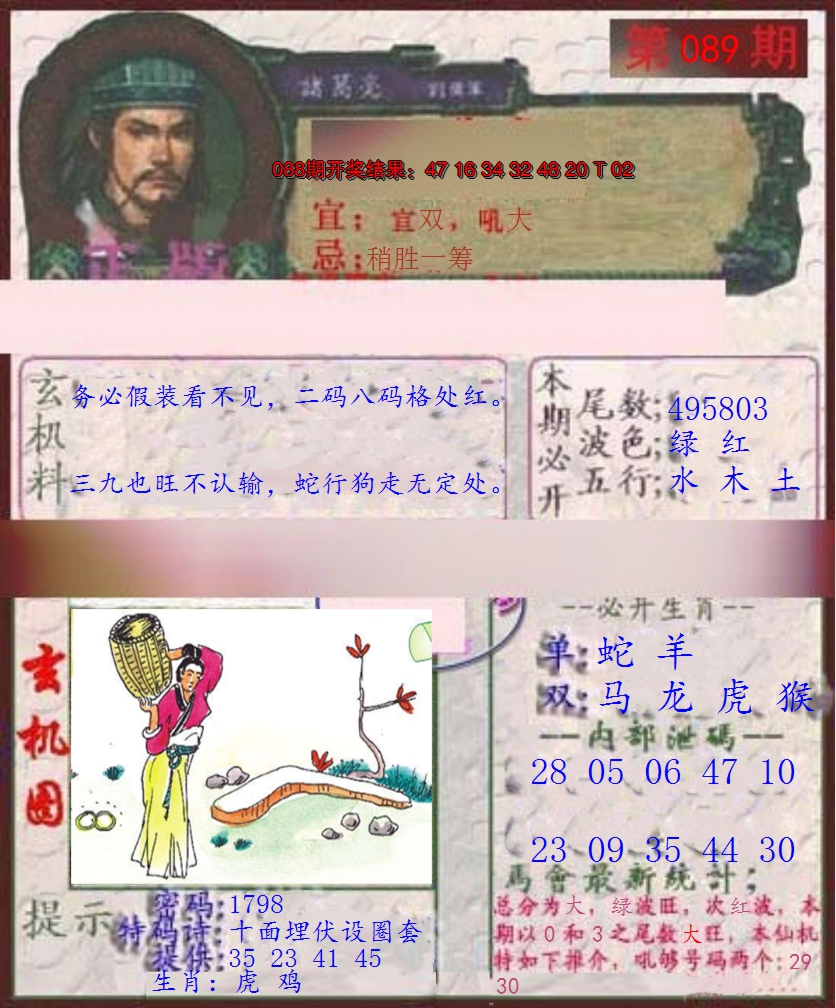 第 089 期
諸葛亮
088期开奖结果：47 16 34 32 48 20 T 02
宜；宜双，吼大
忌；稍胜一筹
正版
玄机料
务必假装看不见，二码八码格处红。
三九也旺不认输，蛇行狗走无定处。
本期必开
尾数；495803
波色；绿 红
五行；水 木 土
玄机图
--必开生肖--
单：蛇 羊
双：马 龙 虎 猴
一一内部泄碼一一
28 05 06 47 10
23 09 35 44 30
馬會最新統計；
总分为大，绿波旺，次红波，本
期以0和3之尾数大旺，本仙机
特如下推介，吼够号码两个：29
30
提示
密码：1798
特码诗：十面埋伏设圈套
提供：35 23 41 45
生肖：虎 鸡